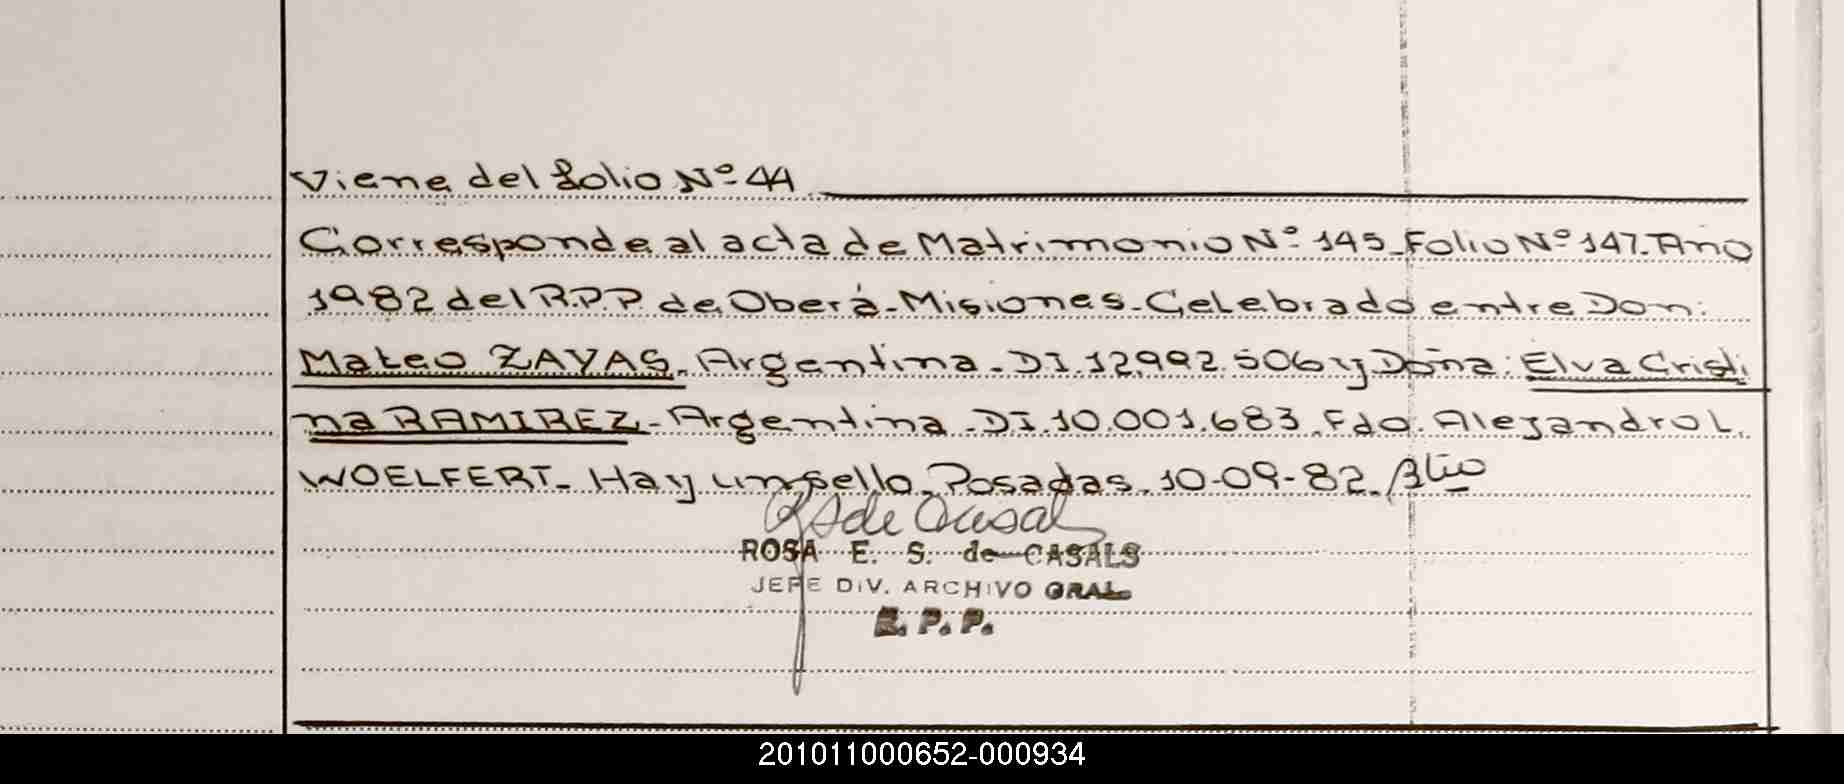 Viene del folio Nº 44
Corresponde al acta de Matrimonio Nº 145_Folio Nº 147. Año
1982 del R.P.P. de Oberá-Misiones-Celebrado entre Don:
Mateo ZAYAS. Argentina. DI.12.992.506 y Doña: Elva Cristi
na RAMIREZ-Argentina.DI.10.001.683.Fdo. Alejandro L.
WOELFERT-Hay un sello. Posadas. 10-09-82.
de Casals
ROSA E. S. de CASALS
JEFE DIV. ARCHIVO GRAL
R. P. P.
201011000652-000934